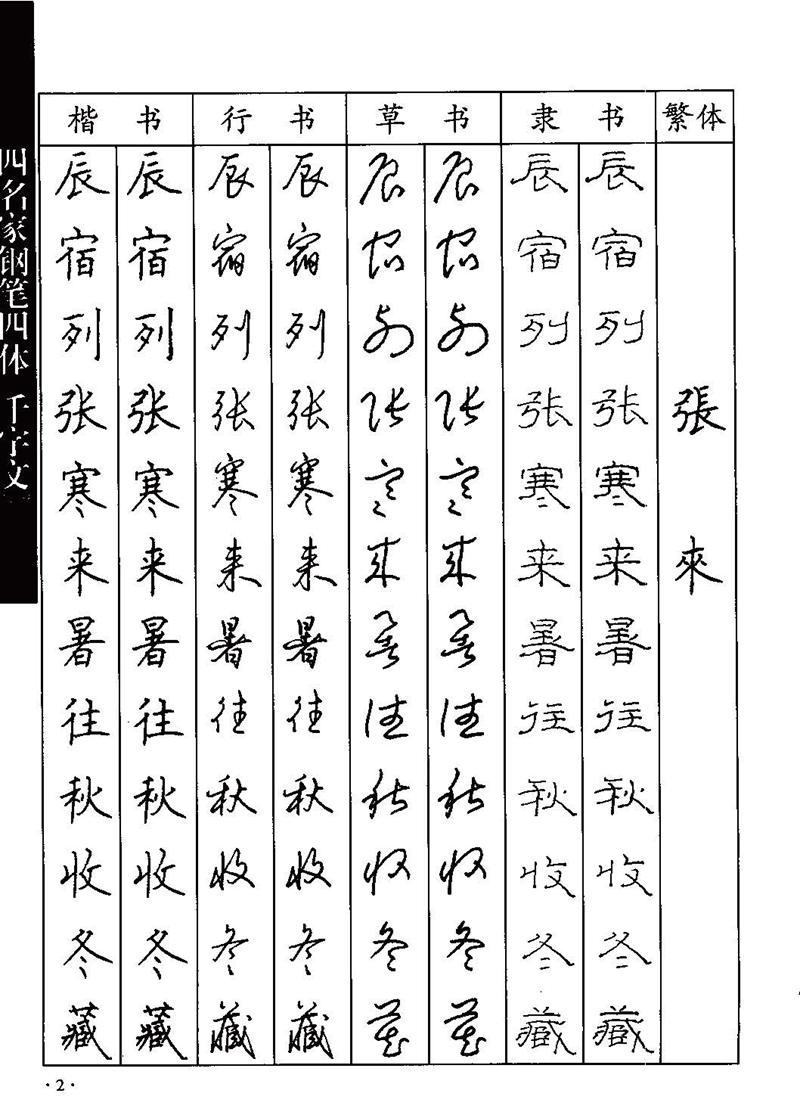 四名家钢笔四体 千字文
楷书 行书 草书 隶书 繁体
辰 辰 辰 辰 辰 辰 辰 辰
宿 宿 宿 宿 宿 宿 宿 宿
列 列 列 列 列 列 列 列
张 张 张 张 张 张 张 张 張
寒 寒 寒 寒 寒 寒 寒 寒
来 来 来 来 来 来 来 来 來
暑 暑 暑 暑 暑 暑 暑 暑
往 往 往 往 往 往 往 往
秋 秋 秋 秋 秋 秋 秋 秋
收 收 收 收 收 收 收 收
冬 冬 冬 冬 冬 冬 冬 冬
藏 藏 藏 藏 藏 藏 藏 藏
·2·